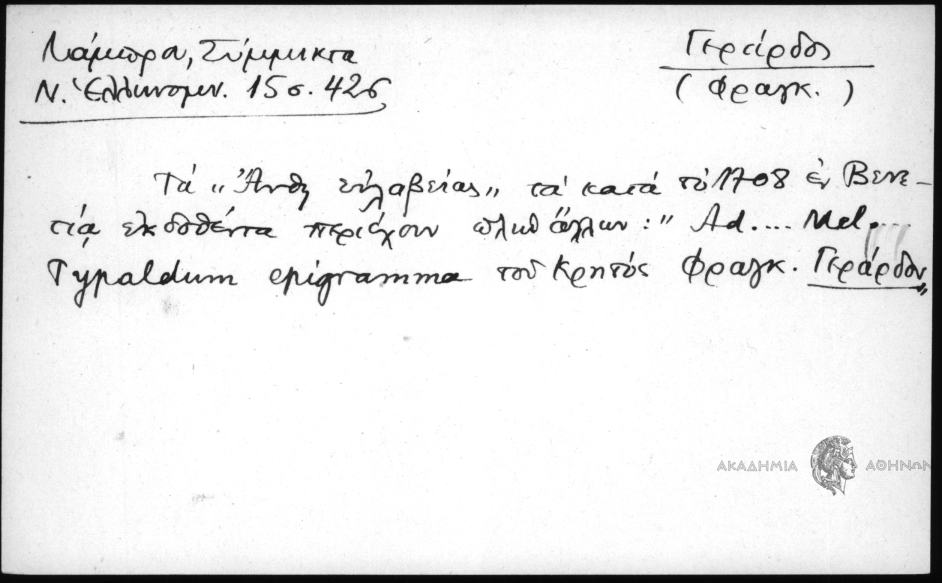 Λάμπρου, Σύμμικτα
Ν. Ἑλληνομν. 15 σ. 426
Γεράρδος
( Φραγκ. )
Τά „Ἄνθη εὐλαβείας„ τά κατά τό 1708 ἐν Βενε-
τίᾳ ἐκδοθέντα περιέχουν πλήν ἄλλων: " Ad.... Mel...
Typaldum epigramma τοῦ Κρητός Φραγκ. Γεράρδου„
ΑΚΑΔΗΜΙΑ ΑΘΗΝΩΝ